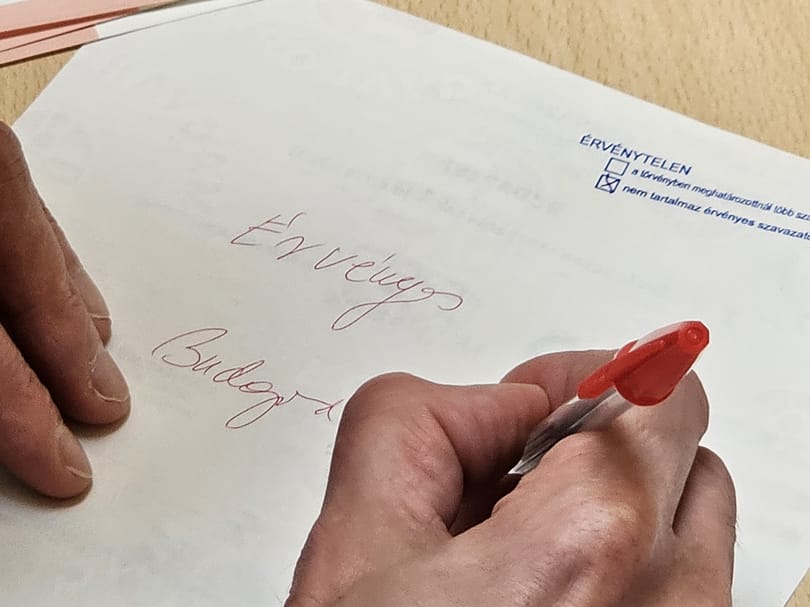 ÉRVÉNYTELEN
a törvényben meghatározottnál több
nem tartalmaz érvényes
Érvényes